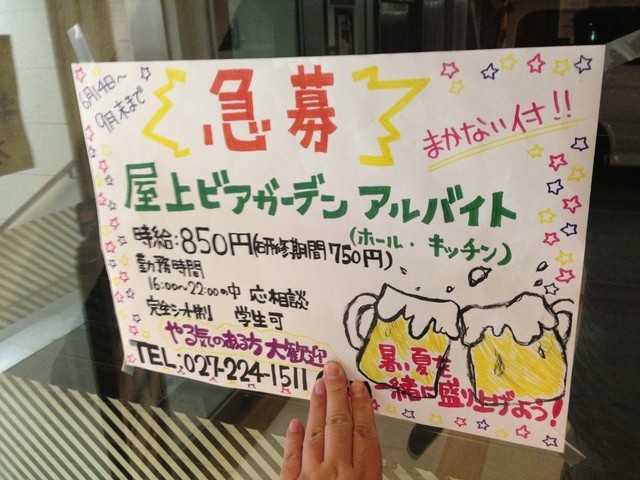 6月14日～
9月末まで
急募
まかない付!!
屋上ビアガーデン アルバイト
(ホール・キッチン)
時給:850円(研修期間750円)
勤務時間
16:00～22:00の中 応相談
完全シフト制 学生可
やる気のある方大歓迎
TEL:027-224-1511
暑い夏を
一緒に盛り上げよう!